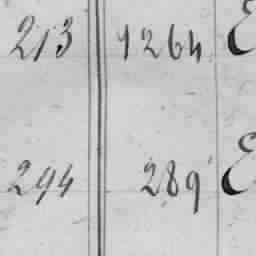 213 1264 E
294 289 E